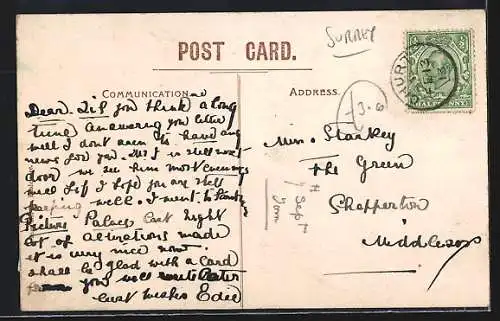 SURREY
POST CARD.
COMMUNICATION
ADDRESS.
HALF PENNY
Dear Lil you think a long
time answering you letter
well I don't seem to have any
news for you. Mr is still next
door we see him most evenings
well Lil I hope you are still
keeping well. I went to
Picture Palace last night
lot of alterations made
it is very nice now.
shall be glad with a card
from you will write later
best wishes Edie
£3.0
Miss Stackey
The Green
Shepperton
Middlesex
7 Sept